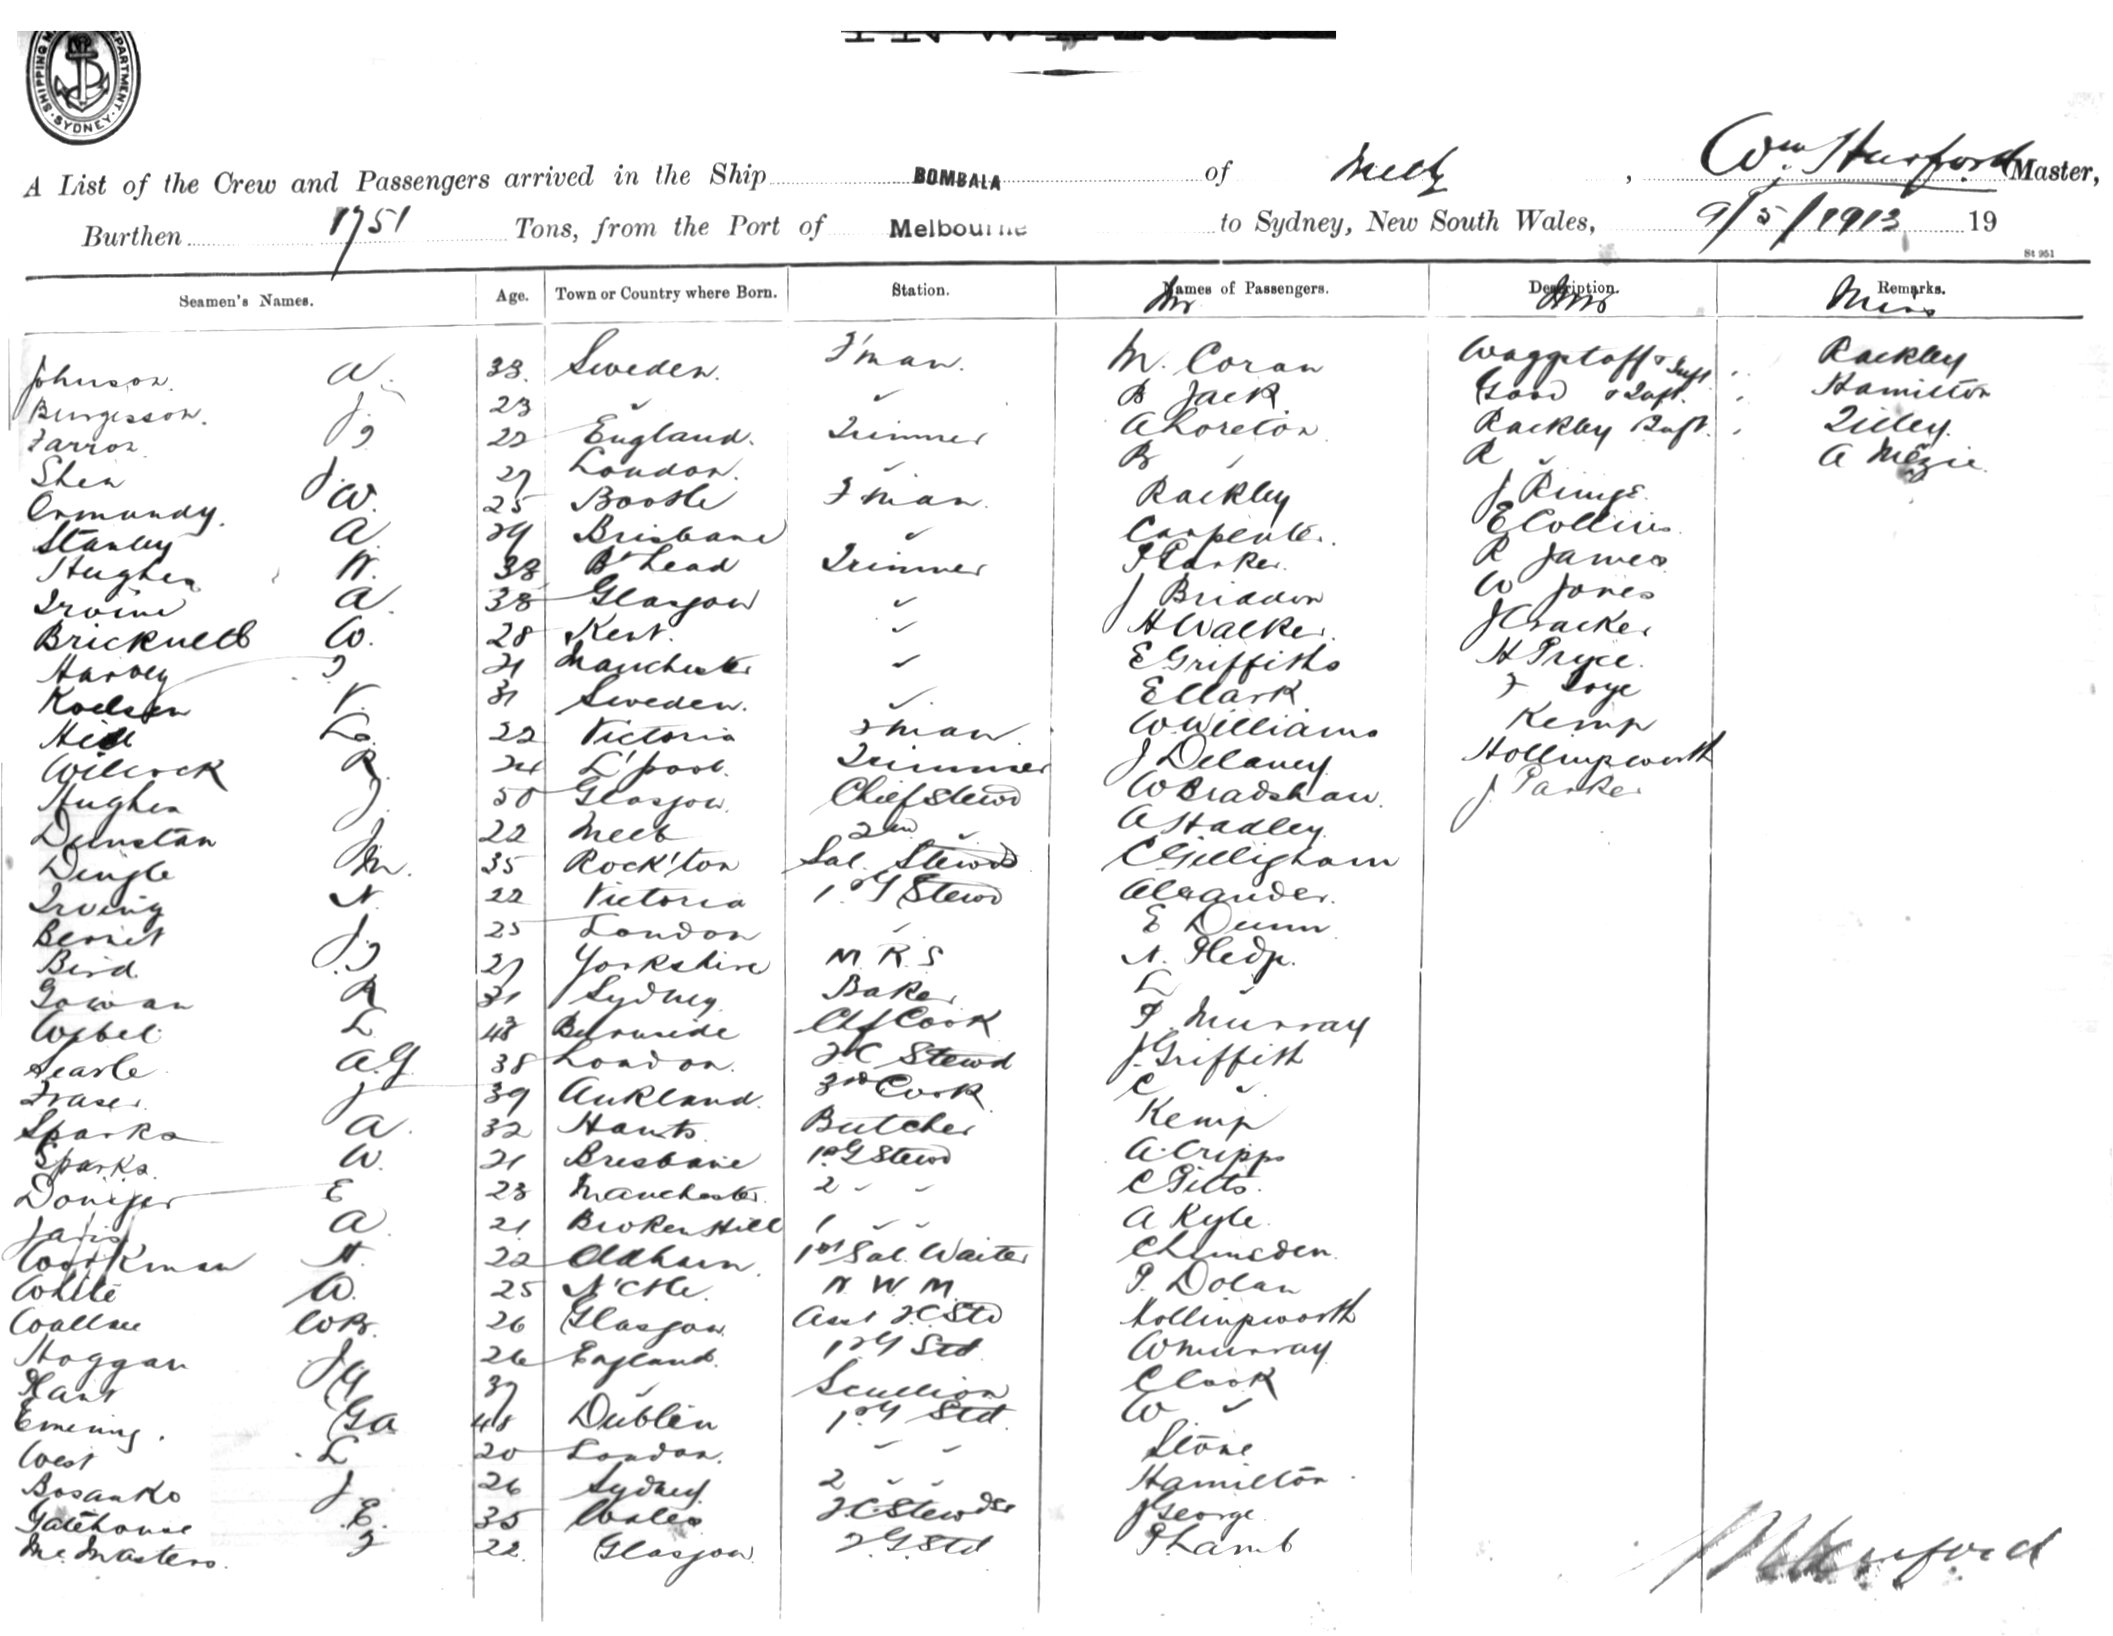 SHIPPING DEPARTMENT SYDNEY
A List of the Crew and Passengers arrived in the Ship BOMBALA of Melb, Wm Hurford Master,
Burthen 1751 Tons, from the Port of Melbourne to Sydney, New South Wales, 9/5/1913 19
St 951
Seamen's Names. Age. Town or Country where Born. Station. Names of Passengers. Description. Remarks.
Mr Mrs Miss
Johnson. A. 33. Sweden. F'man. M. Coran Waggstaff & Inft. Rackley
J. 23 ✓ ✓ B Jack Good & Inft. Hamilton
J 22 England. Trimmer A Loreton Rackley Inft. Tilley.
Shea J. 27 London. ✓ B ✓ R ✓ A
Ormandy. W. 25 Bootle F'man. Rackley J Ringe.
Stanley A 29 Brisbane ✓ Carpenter. E Collins
Hughes W. 38 B'head Trimmer Parker. R James
Irvine A. 38 Glasgow ✓ J W Jones
Bricknell W. 28 Kent. ✓ H Walker. J
Harvey 21 Manchester ✓ E Griffiths H Pryce.
V. 31 Sweden. ✓ E Clark F
Hill L. 22 Victoria F'man W Williams Kemp
Wilcock R. 24 L'pool. Trimmer J Delaney Hollingworth
Hughes J. 50 Glasgow. Chief Stewd W Bradshaw. J Parker
Dunstan J 22 Melb 2nd ✓ A Hadley
Dingle M. 35 Rock'ton Sal. Stewds C Gilligham
Irving N. 22 Victoria 1st G Stewd Alexander.
J. 25 London ✓ E Dunn
Bird J. 27 Yorkshire M. R. S N.
Gowan R 31 Sydney Baker L ✓
L 48 Burnside Chf Cook P. Murray
Searle A.G. 38 London. F C Stewd J. Griffith
Fraser. J 39 Aukland. 3rd Cook C ✓
Sparks A. 32 Hants. Butcher Kemp
Sparks. W. 21 Brisbane 1st G Stewd A. Cripps
E 23 Manchester. 2 ✓ ✓ C Pitts.
A. 21 Broken Hill 1 ✓ ✓ A Kyle.
Workman H. 22 Oldham. 1st Sal. Waiter C Lumsden.
White W. 25 N'Cstle. N. W. M. P. Dolan
Wallace W R. 26 Glasgow. Asst F.C. Std Hollingworth
Hoggan J 26 England. 1st G Std W Murray
Kant 37 ✓ Scullion C Cook
G A 48 Dublin 1st G Std W ✓
West L 20 London. ✓ ✓ Stone
Bosanko J 26 Sydney 2 ✓ ✓ Hamilton
Gatehouse E. 35 Wales F.C. Stewdss J George
McMasters. J 22 Glasgow 2 G. Std P. Lamb
Hurford